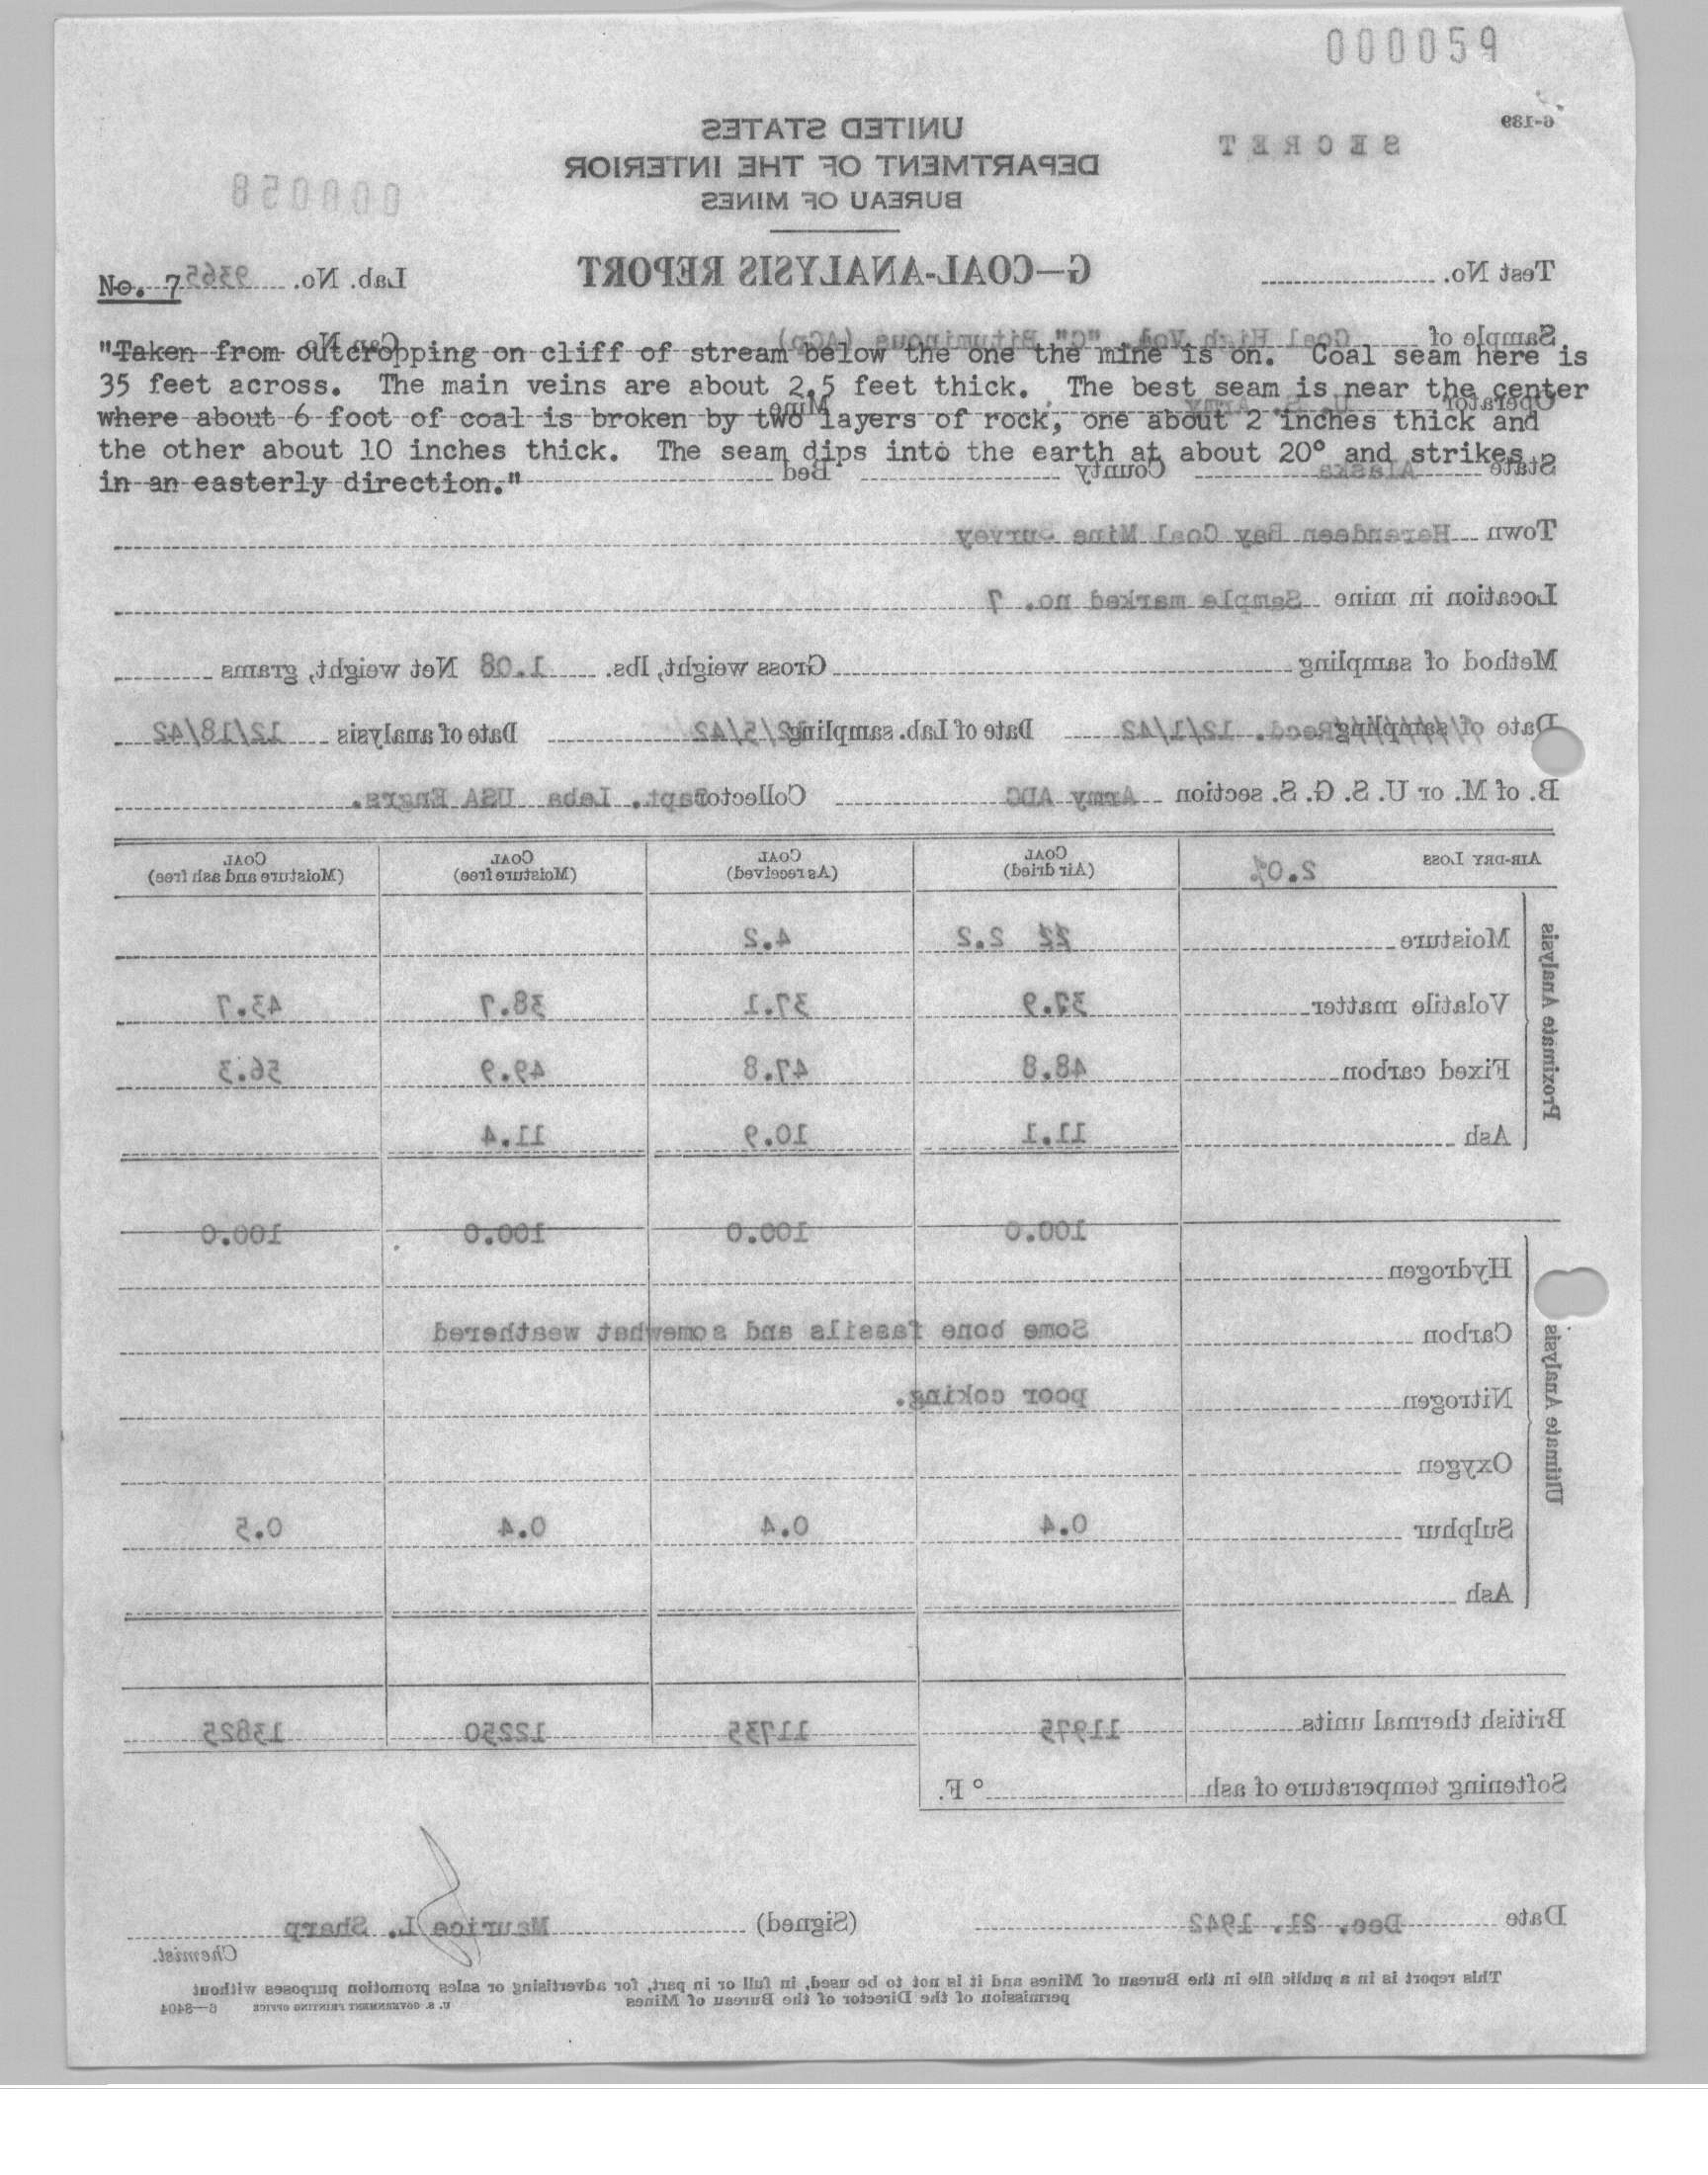 000059
6-189
SECRET
UNITED STATES
DEPARTMENT OF THE INTERIOR
BUREAU OF MINES
000058
G—COAL-ANALYSIS REPORT
Test No.
Lab. No. 9365
No. 7
Sample of Coal High Vol. "C" Bituminous Can No.
"Taken from outcropping on cliff of stream below the one the mine is on.  Coal seam here is
35 feet across.  The main veins are about 2.5 feet thick.  The best seam is near the center
Operator U. S. Army Mine
where about 6 foot of coal is broken by two layers of rock, one about 2 inches thick and
the other about 10 inches thick.  The seam dips into the earth at about 20° and strikes
State Alaska County Bed
in an easterly direction."
Town Herendeen Bay Coal Mine Survey
Location in mine Sample marked no. 7
Method of sampling Gross weight, lbs. 1.08 Net weight, grams
Date of sampling Recd. 12/1/42 Date of Lab. sampling 12/5/42 Date of analysis 12/18/42
B. of M. or U. S. G. S. section Army ADC Collector Capt. Leba USA Engrs.
AIR-DRY LOSS 2.0% COAL (Air dried) COAL (As received) COAL (Moisture free) COAL (Moisture and ash free)
Proximate Analysis
Moisture 2.2 4.2
Volatile matter 37.9 37.1 38.7 43.7
Fixed carbon 48.8 47.8 49.9 56.3
Ash 11.1 10.9 11.4
100.0 100.0 100.0 100.0
Ultimate Analysis
Hydrogen
Carbon Some bone fassils and somewhat weathered
Nitrogen poor coking.
Oxygen
Sulphur 0.4 0.4 0.4 0.5
Ash
British thermal units 11975 11735 12250 13825
Softening temperature of ash ° F.
Date Dec. 21. 1942 (Signed) Maurice L. Sharp
Chemist.
This report is in a public file in the Bureau of Mines and it is not to be used, in full or in part, for advertising or sales promotion purposes without
permission of the Director of the Bureau of Mines
U. S. GOVERNMENT PRINTING OFFICE 6—8404